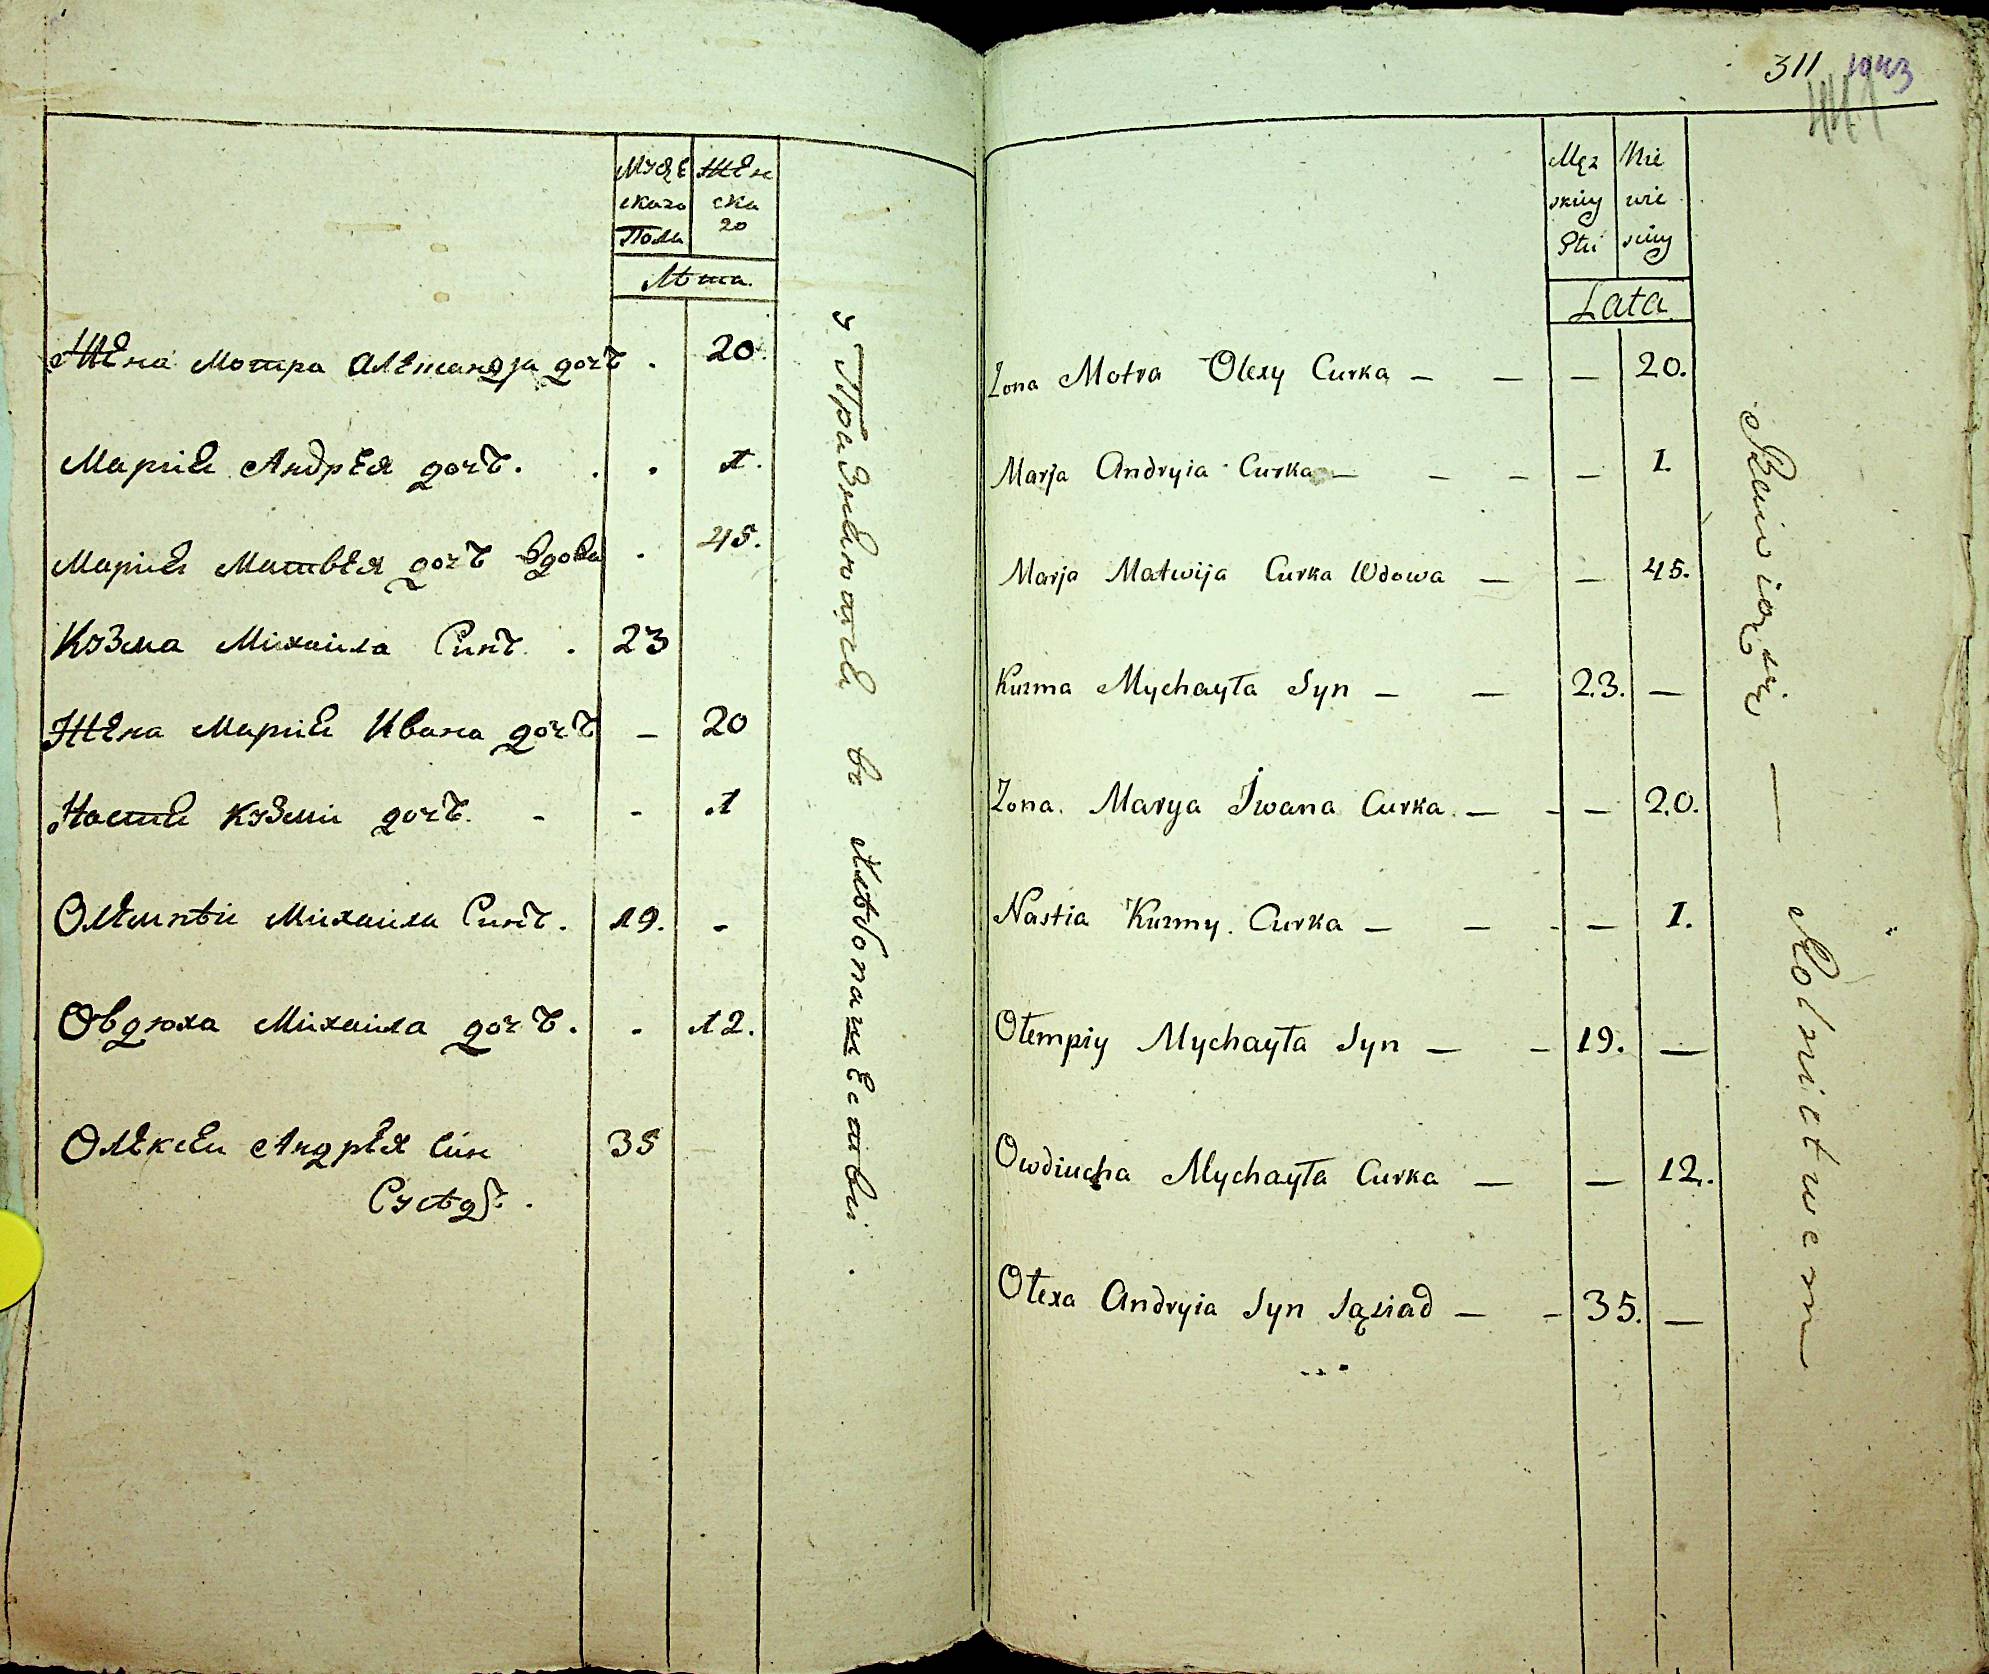 Муже Жен
скаго ска
Пола го
Лѣта.
Жена Мотра Александра дочъ . 20.
Мариѣ Андрея дочъ. . . 1.
Мариѣ Матвея дочъ вдова . 45.
Кузма Михаила Синъ . 23
Жена Мариѣ Ивана дочъ – 20
Настиѣ Кузми дочъ. - - 1
Олемпѣи Михаила Синъ. 19. -
Овдюха Михаила дочъ. . 12.
Олексеи Андрея Син 35
Сусѣдъ.
в Хлѣбопашествѣ.
311 1043
Męz Nie
skiey wie
Płci sciey
Lata
Zona Motra Olexy Curka – – – 20.
Marja Andryia Curka – – – – 1.
Marja Matwija Curka Wdowa – – 45.
Kuzma Mychayła Syn – – 23. –
Zona. Marya Iwana Curka. – - – 20.
Nastia Kuzmy. Curka – – - – 1.
Ołempiy Mychayła Syn – – 19. –
Owdiucha Mychayła Curka – – 12.
Ołexa Andryia Syn Sąsiad – – 35. –
Rolnictwem